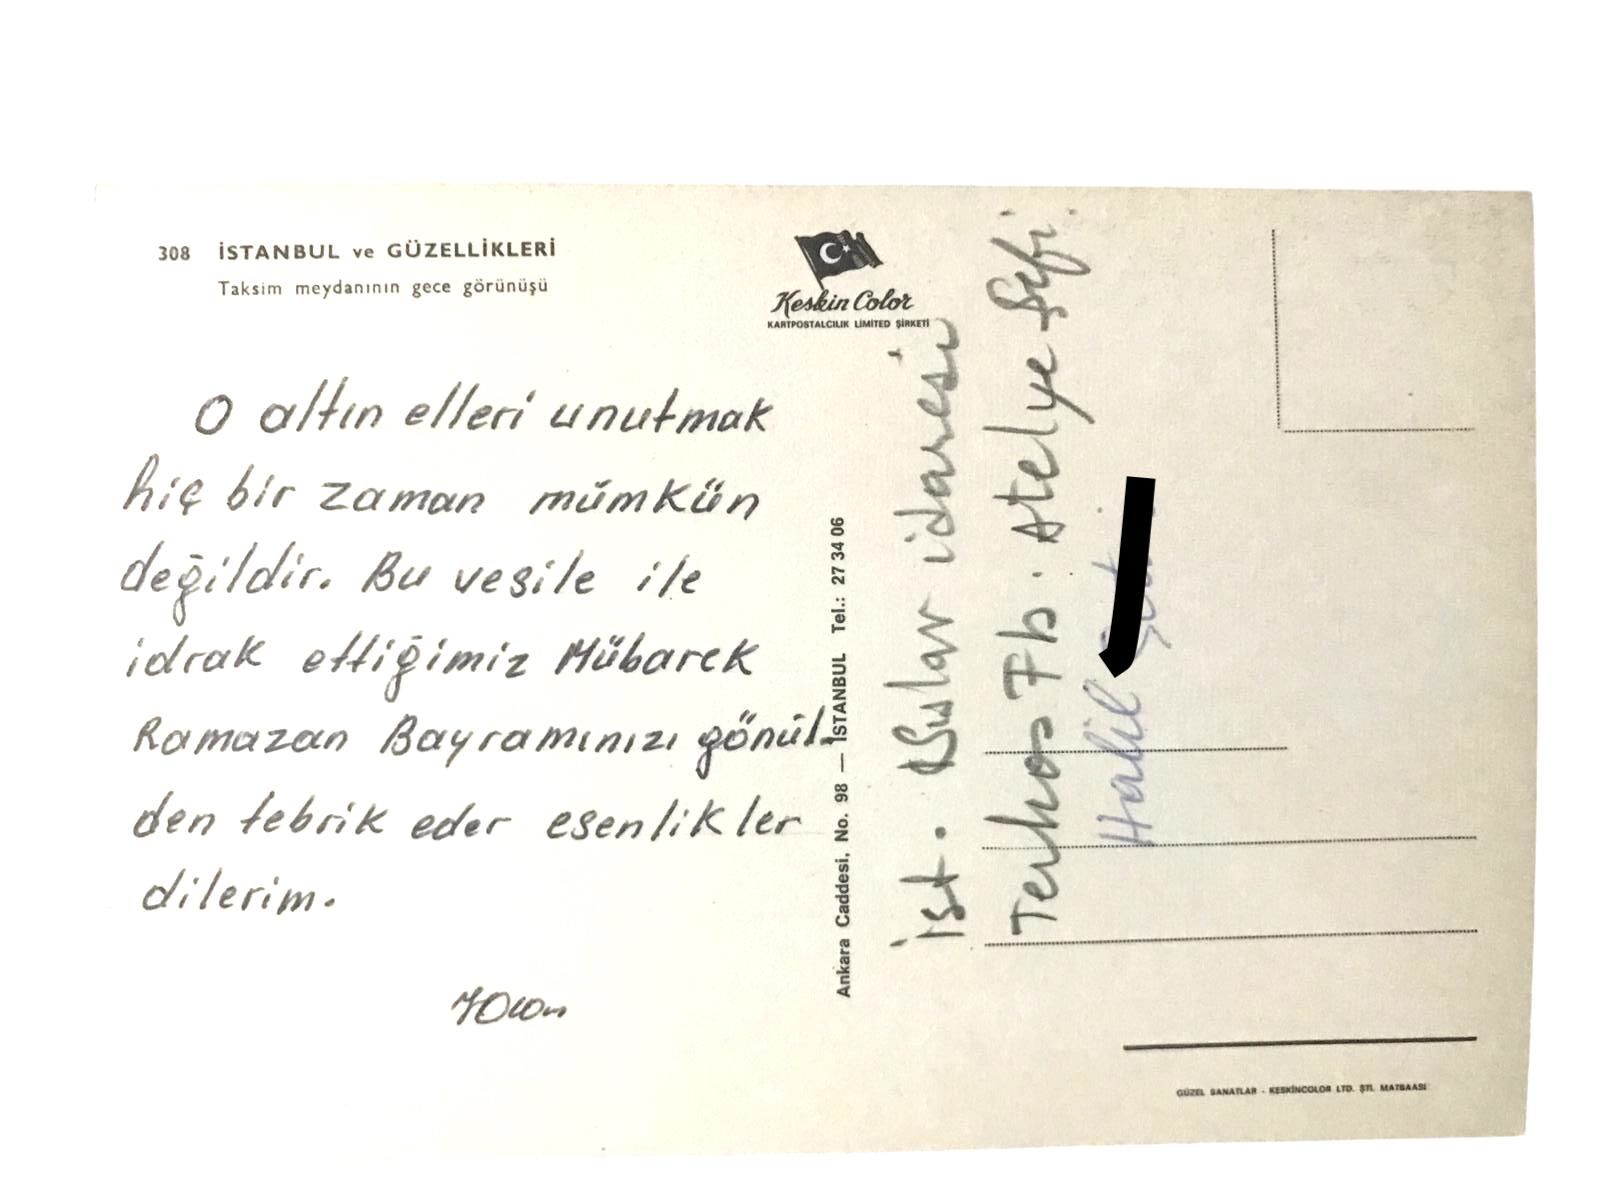 308 İSTANBUL ve GÜZELLİKLERİ
Taksim meydanının gece görünüşü
Keskin Color
KARTPOSTALCILIK LİMİTED ŞİRKETİ
O altın elleri unutmak
hiç bir zaman mümkün
değildir. Bu vesile ile
idrak ettiğimiz Mübarek
Ramazan Bayramınızı gönül-
den tebrik eder esenlikler
dilerim.
Ankara Caddesi, No. 98 — İSTANBUL Tel.: 27 34 06
İst. Sular idaresi
Terkos Fb. Atelye Şefi
Halil
GÜZEL SANATLAR - KESKİNCOLOR LTD. ŞTİ. MATBAASI